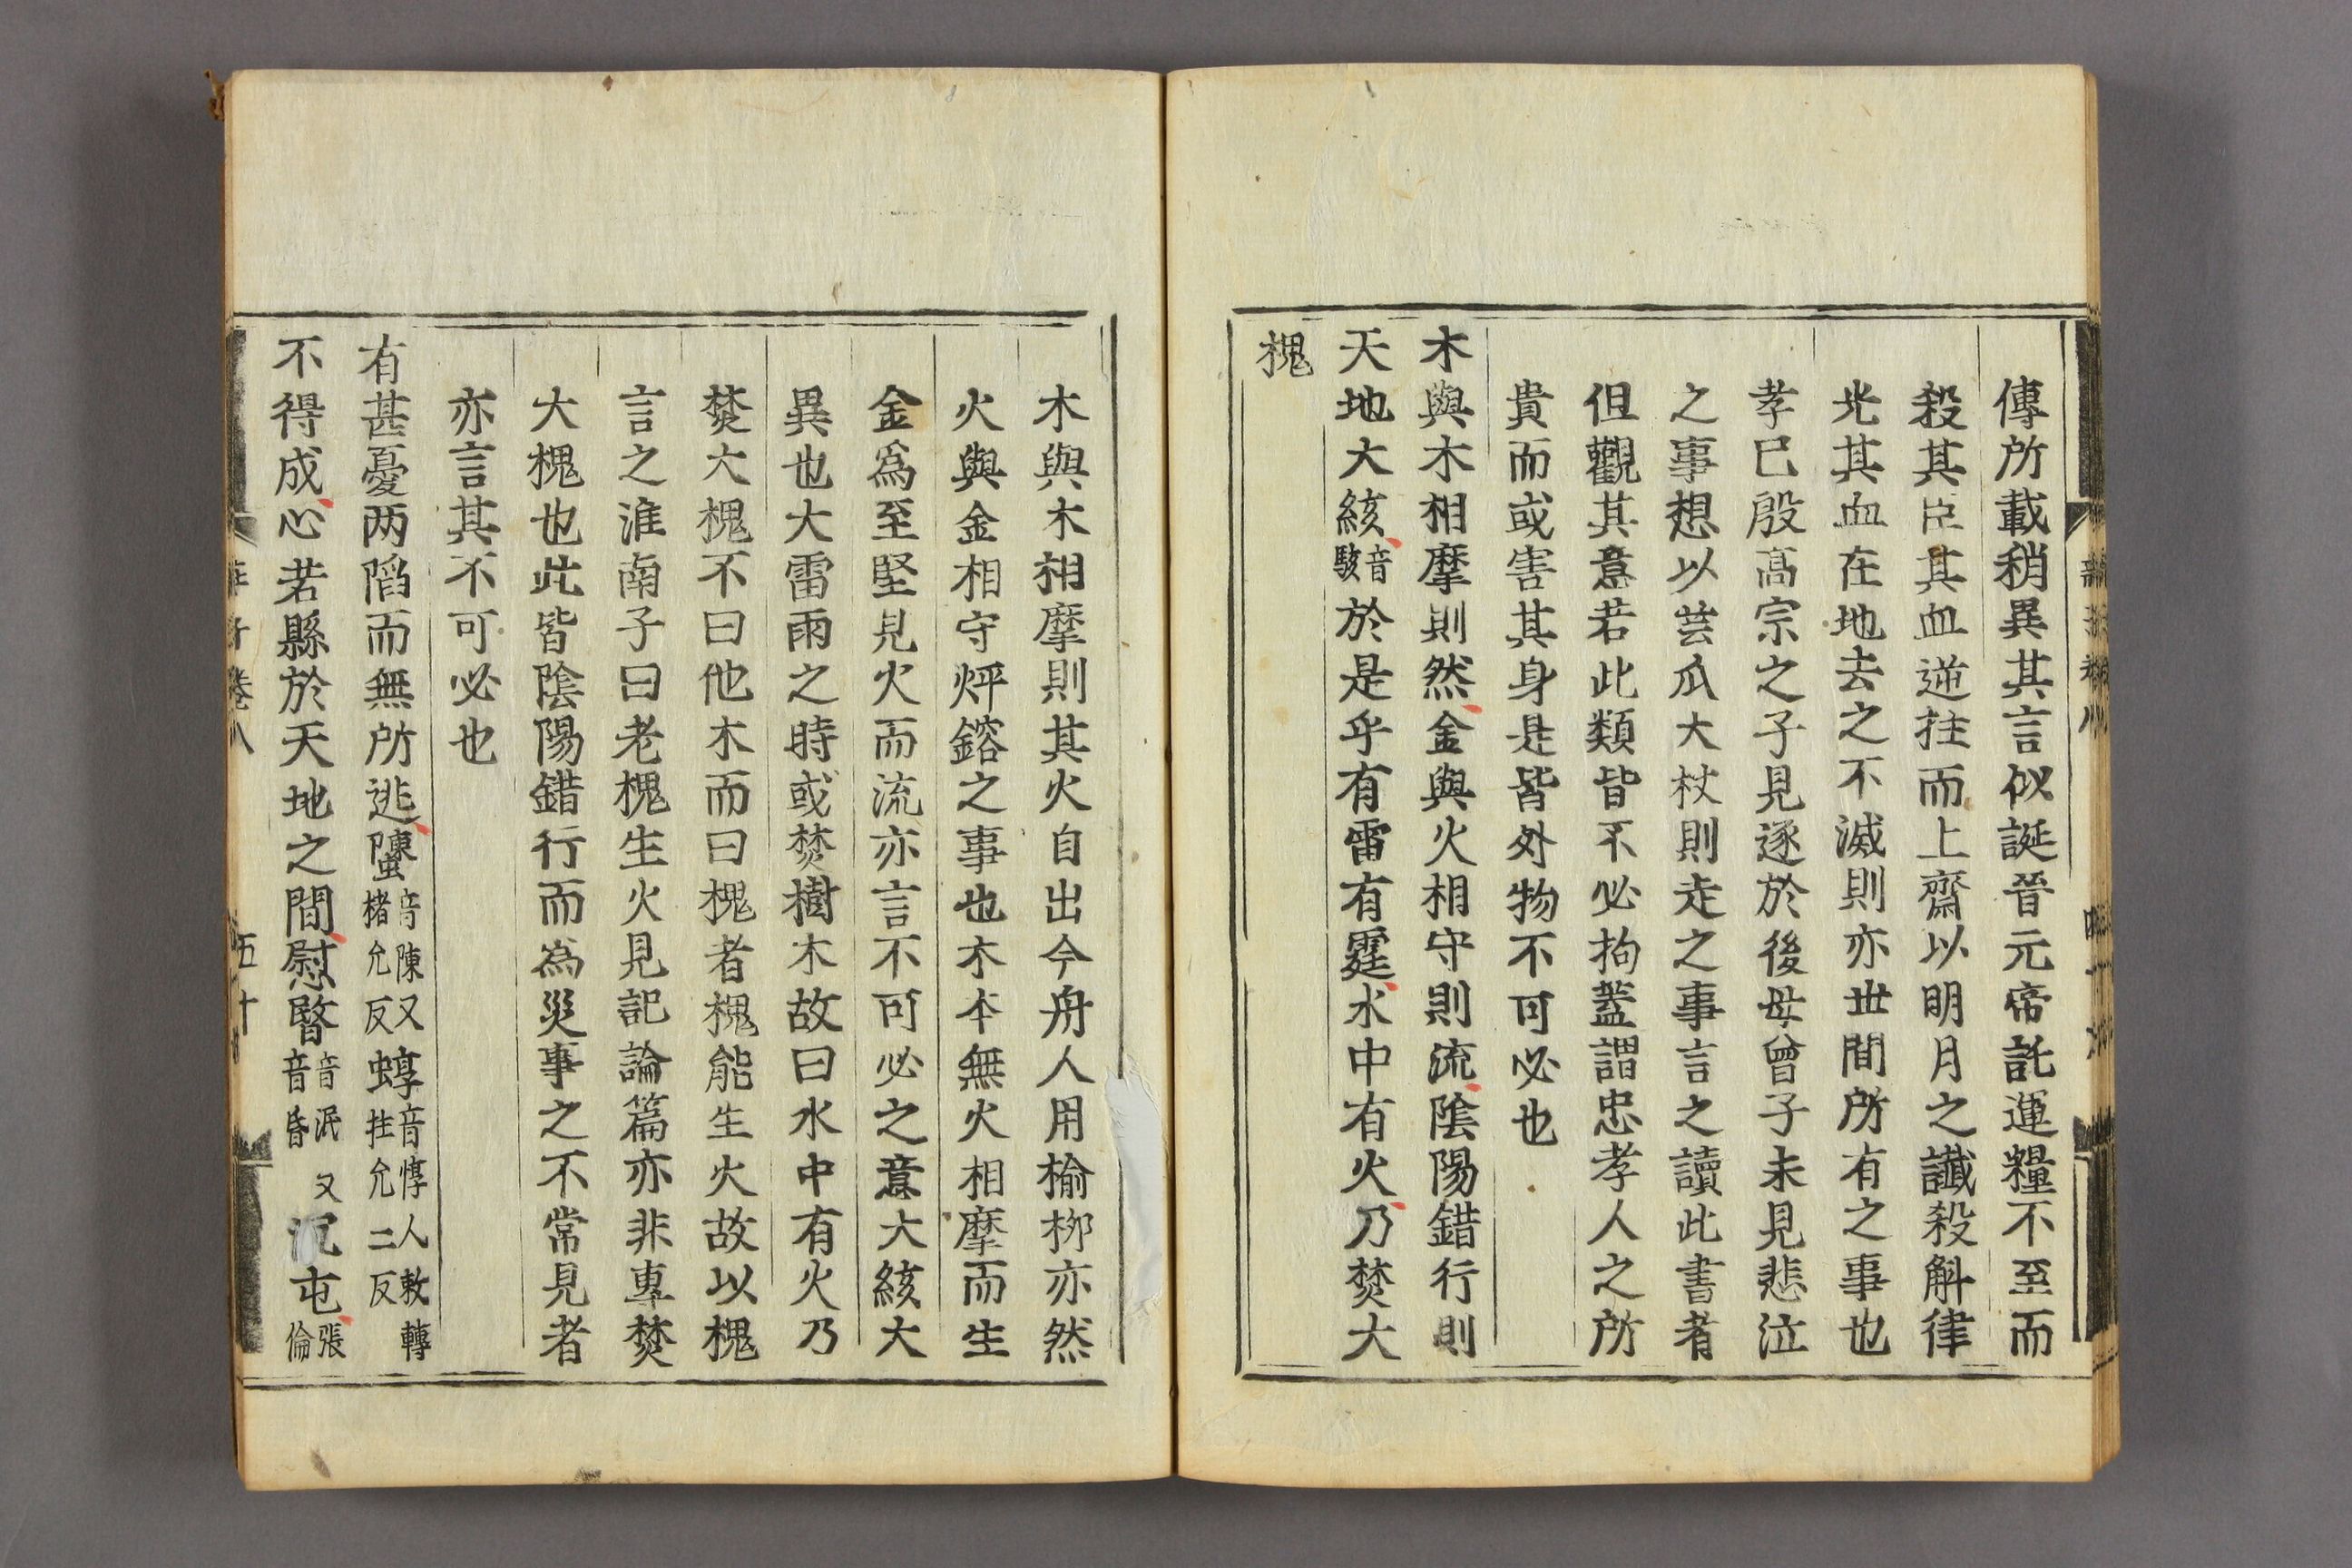 傳所載稍異其言似誕晉元帝託運糧不至而
殺其臣其血逆拄而上齋以明月之讖殺斛律
光其血在地去之不滅則亦世間所有之事也
孝巳殷高宗之子見逐於後母曾子未見悲泣
之事想以芸瓜大杖則走之事言之讀此書者
但觀其意若此類皆不必拘蓋謂忠孝人之所
貴而或害其身是皆外物不可必也
木與木相摩則然金與火相守則流陰陽錯行則
天地大絯音駭於是乎有雷有霆水中有火乃焚大
槐
木與木相摩則其火自出今舟人用榆柳亦然
火與金相守烀鎔之事也木本無火相摩而生
金爲至堅見火而流亦言不可必之意大絯大
異也大雷雨之時或焚樹木故曰水中有火乃
焚大槐不曰他木而曰槐者槐能生火故以槐
言之淮南子曰老槐生火見記論篇亦非專焚
大槐也此皆陰陽錯行而為災事之不常見者
亦言其不可必也
有甚憂两陷而無所逃螴音陳又楮允反蜳音惇人敕轉拄允二反
不得成心若縣於天地之間慰暋音泯又音昏沉屯張倫
莊子卷八
五十